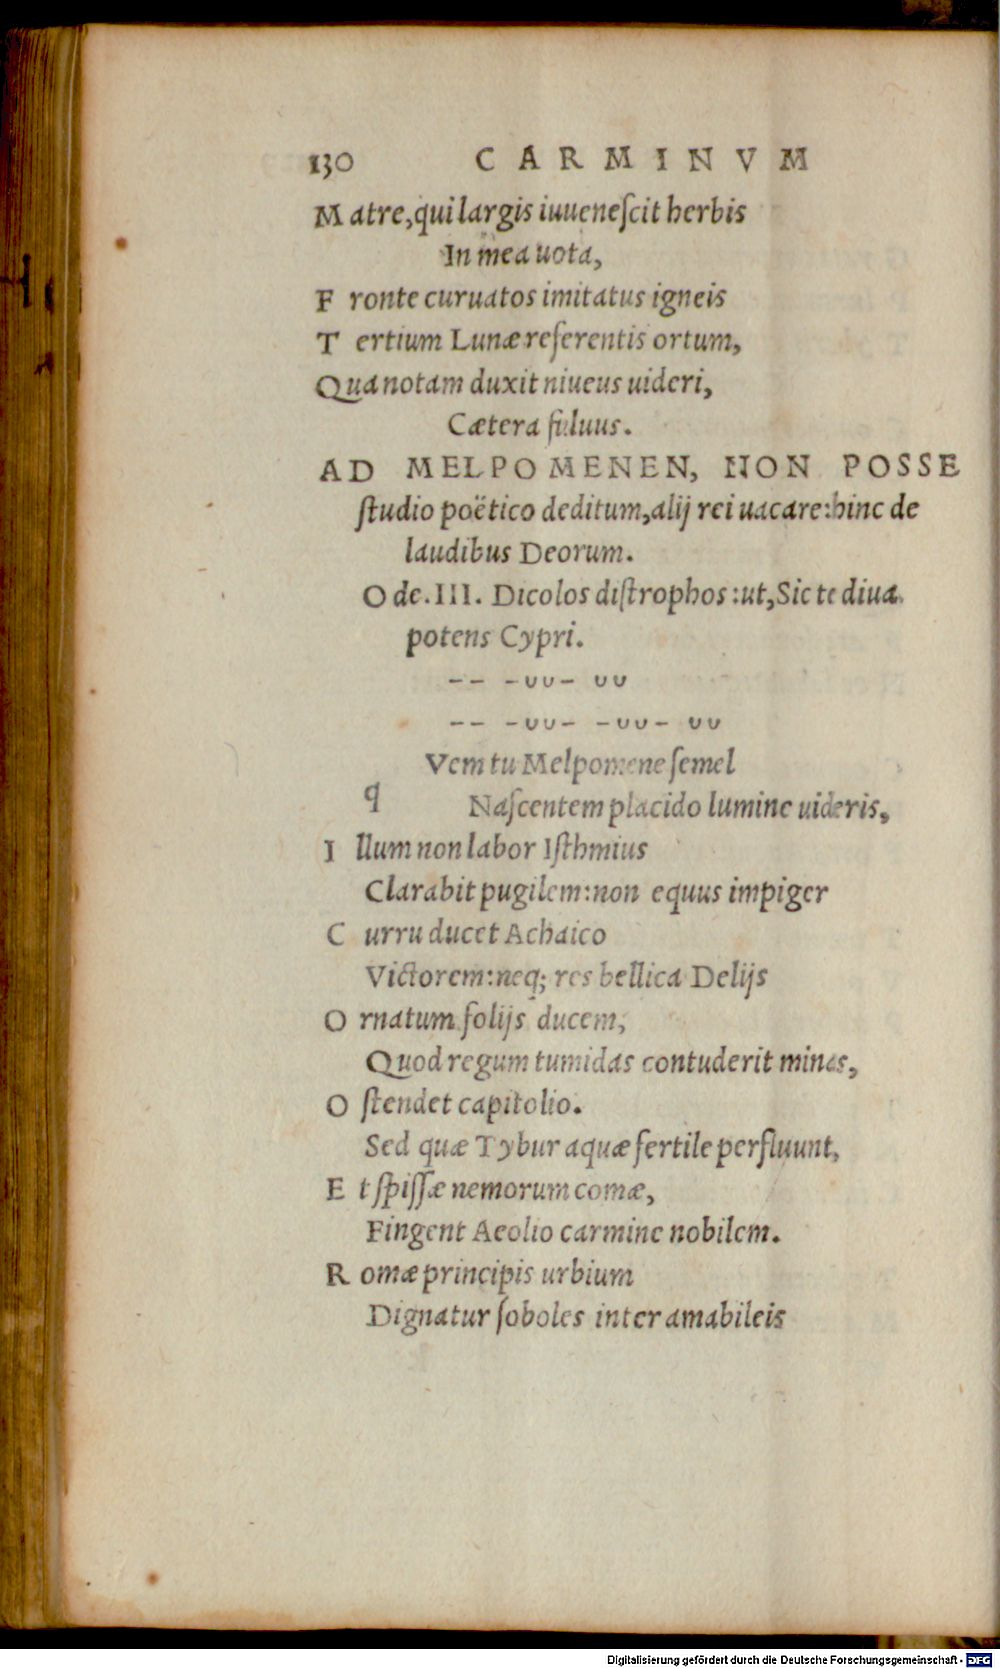 130 CARMINVM
Matre, qui largis iuueneſcit herbis
In mea uota,
Fronte curuatos imitatus igneis
Tertium Lunæ referentis ortum,
Qua notam duxit niueus uideri,
Cætera fuluus.
AD MELPOMENEN, NON POSSE
ſtudio poëtico deditum, alij rei uacare: hinc de
laudibus Deorum.
Ode. III. Dicolos diſtrophos: ut, Sic te diua
potens Cypri.
-- -uu- uu
-- -uu- -uu- uu
Vem tu Melpomene ſemel
q
Naſcentem placido lumine uideris,
Illum non labor Iſthmius
Clarabit pugilem: non equus impiger
Curru ducet Achaico
Victorem: neq; res bellica Delijs
Ornatum folijs ducem,
Quod regum tumidas contuderit minas,
Oſtendet capitolio.
Sed quæ Tybur aquæ fertile perfluunt,
Et ſpiſſæ nemorum comæ,
Fingent Aeolio carmine nobilem.
Romæ principis urbium
Dignatur ſoboles inter amabileis
Digitalisierung gefördert durch die Deutsche Forschungsgemeinschaft - DFG